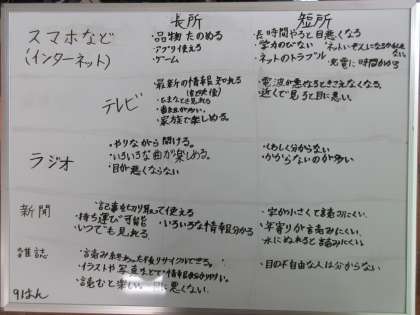 長所 短所
スマホなど
(インターネット)
・品物たのめる
・アプリ使える
・ゲーム
・長時間やると目悪くなる
・学力のびない
・ネットのトラブル
・充電に時間かかる
テレビ
・最新の情報知れる
・家族で楽しめる。
・電波が悪くなるときえなくなる。
・近くで見ると目に悪い。
ラジオ
・やりながら聞ける。
・いろいろな曲が楽しめる。
・目が悪くならない
・くわしく分からない
・わからないのが多い
新聞
・記事を切り取って使える
・持ち運び可能
・いろいろな情報分かる
・いつでも見れる
・字が小さくて読みにくい
・年寄りが読みにくい
・水にぬれると読みにくい
雑誌
・読み終わった後リサイクルできる。
・イラストや写真などで情報が分かりやすい。
・読むと楽しい
・目の不自由な人は分からない
9はん